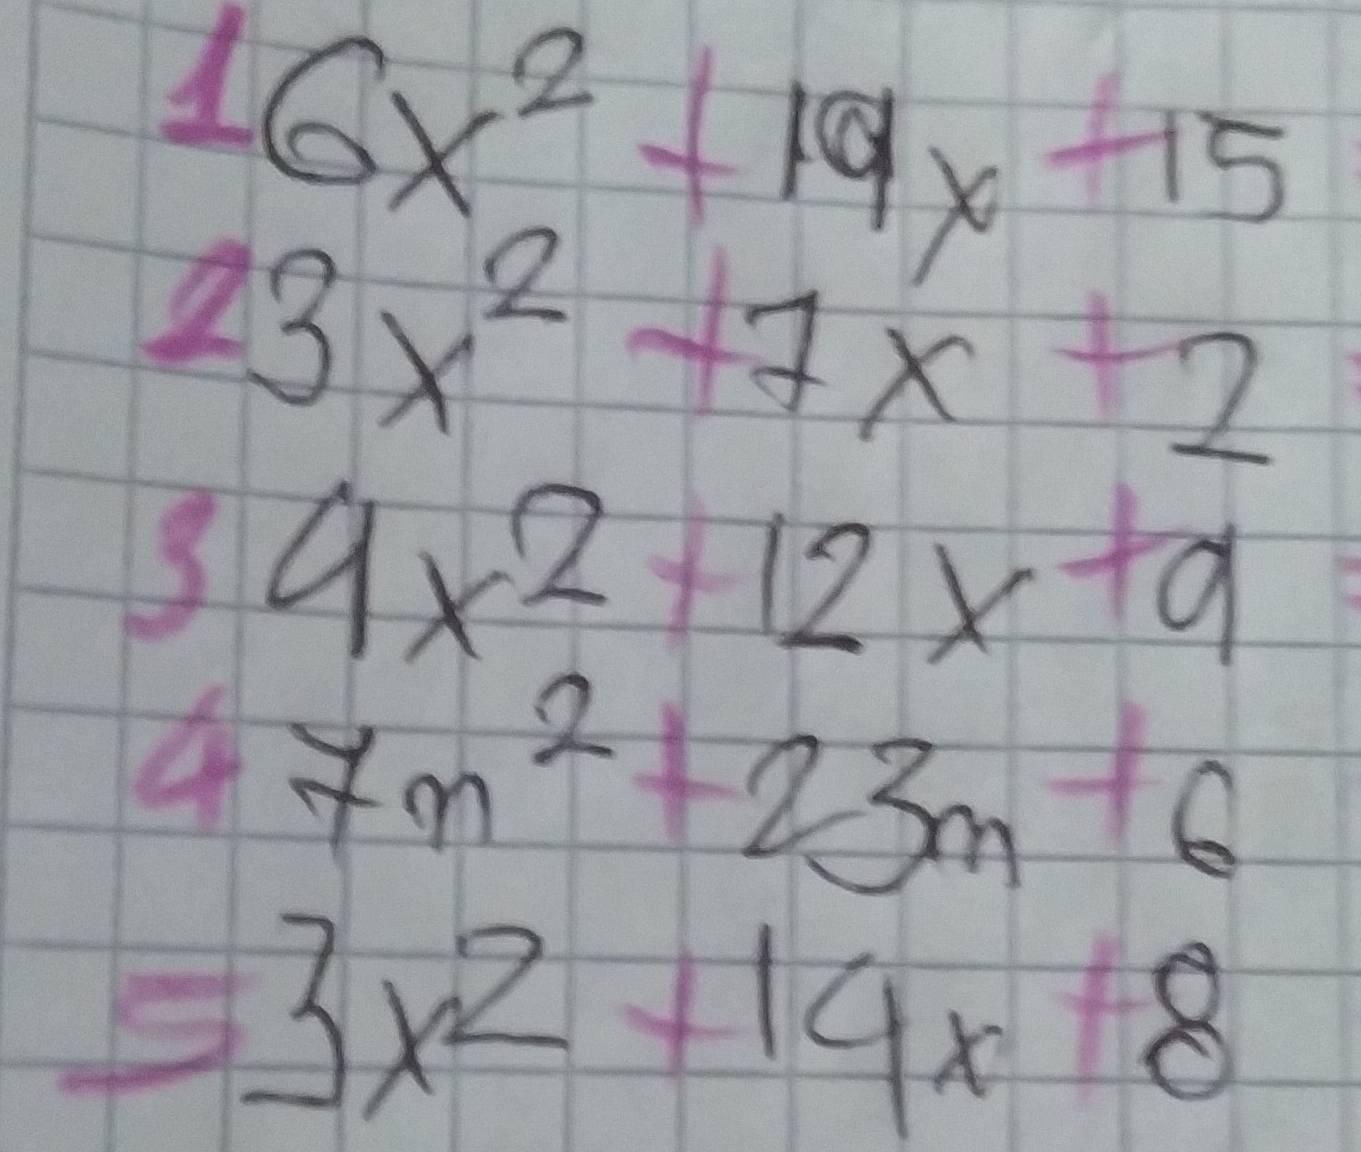 1 6x² + 19x + 15
2 3x² + 7x + 2
3 4x² + 12x + 9
4 7m² + 23m + 6
5 3x² + 14x + 8